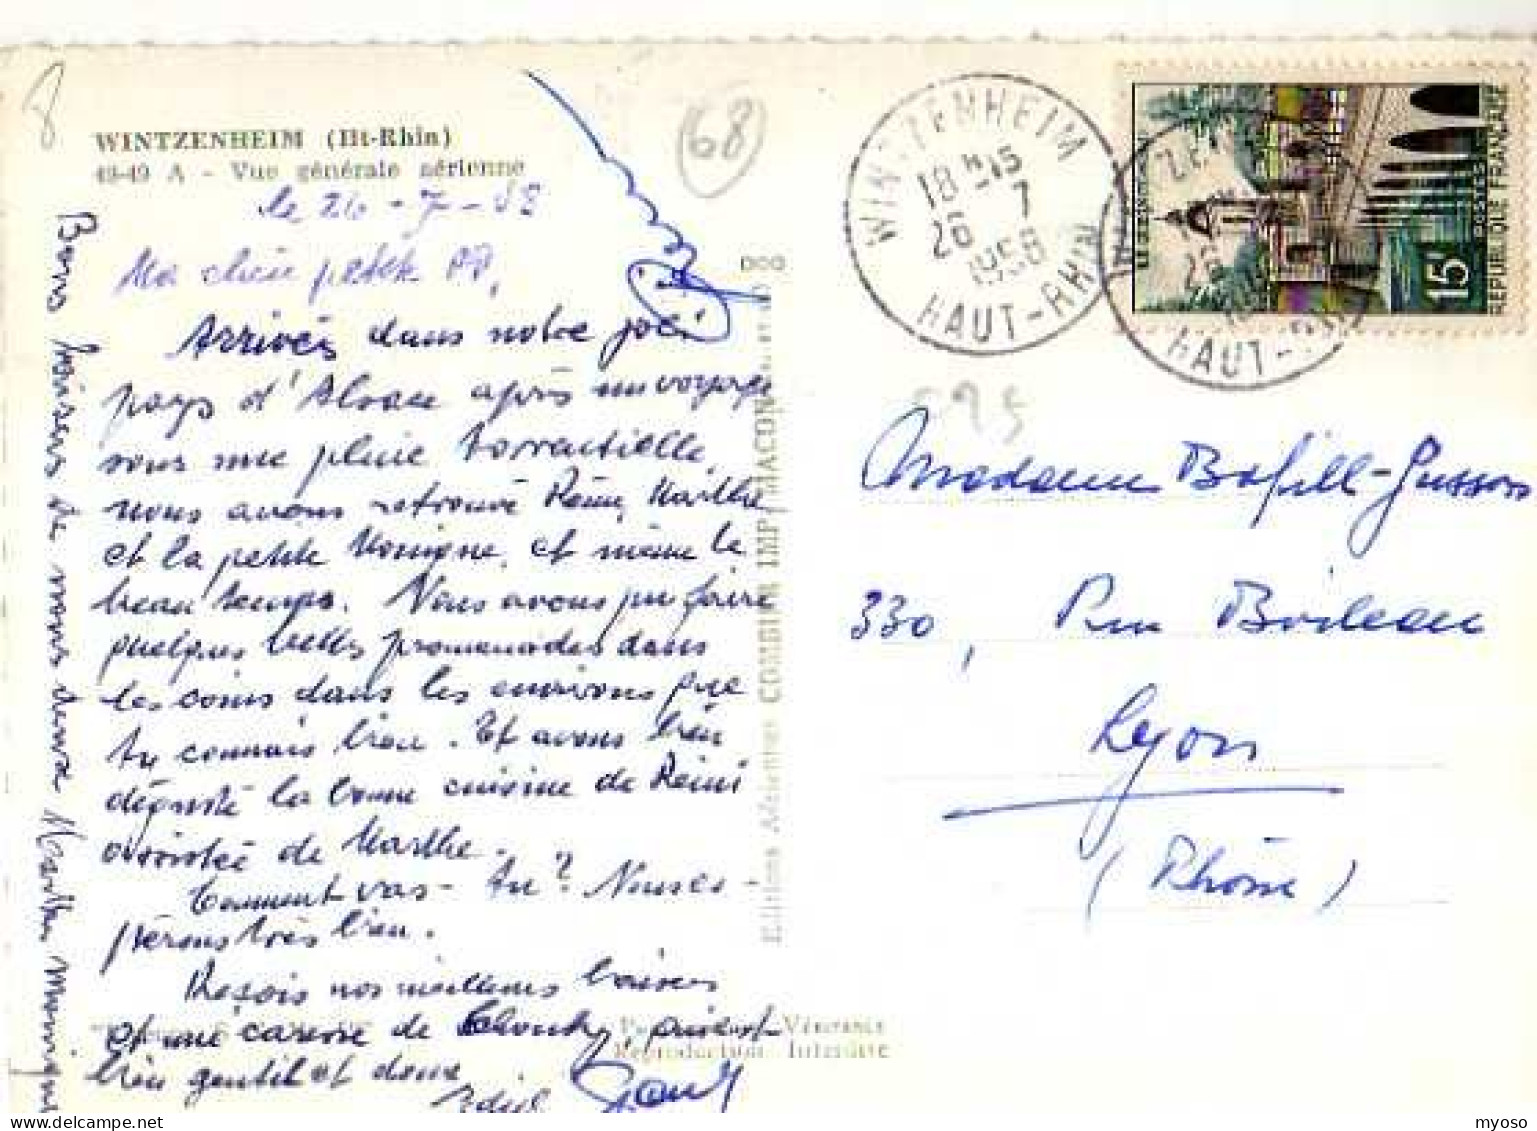 WINTZENHEIM (Ht-Rhin)
49-49 A - Vue générale aérienne
le 26-7-58
Ma chère petite
Arrivés dans notre joli
pays d'Alsace après un voyage
sous une pluie torrentielle,
nous avons retrouvé Rémi, Marthe
et la petite Monique, et même le
beau temps. Nous avons pu faire
quelques belles promenades dans
les coins dans les environs que
tu connais bien. Et avons bien
dégusté la bonne cuisine de Rémi
assistée de Marthe.
Comment vas-tu? Nous es-
pérons très bien.
Reçois nos meilleurs baisers
et une caresse de qui est
bien gentil et doux
Bons baisers de nous deux Marthe Monique
68
WINTZENHEIM
18H15
26-7
1958
HAUT-RHIN
HAUT-
RÉPUBLIQUE FRANÇAISE
POSTES
15F
Madame Bofill-
330, Rue Boileau
Lyon
(Rhône)
Editions Aériennes COMBIER IMP. MACON
Reproduction Interdite
myoso